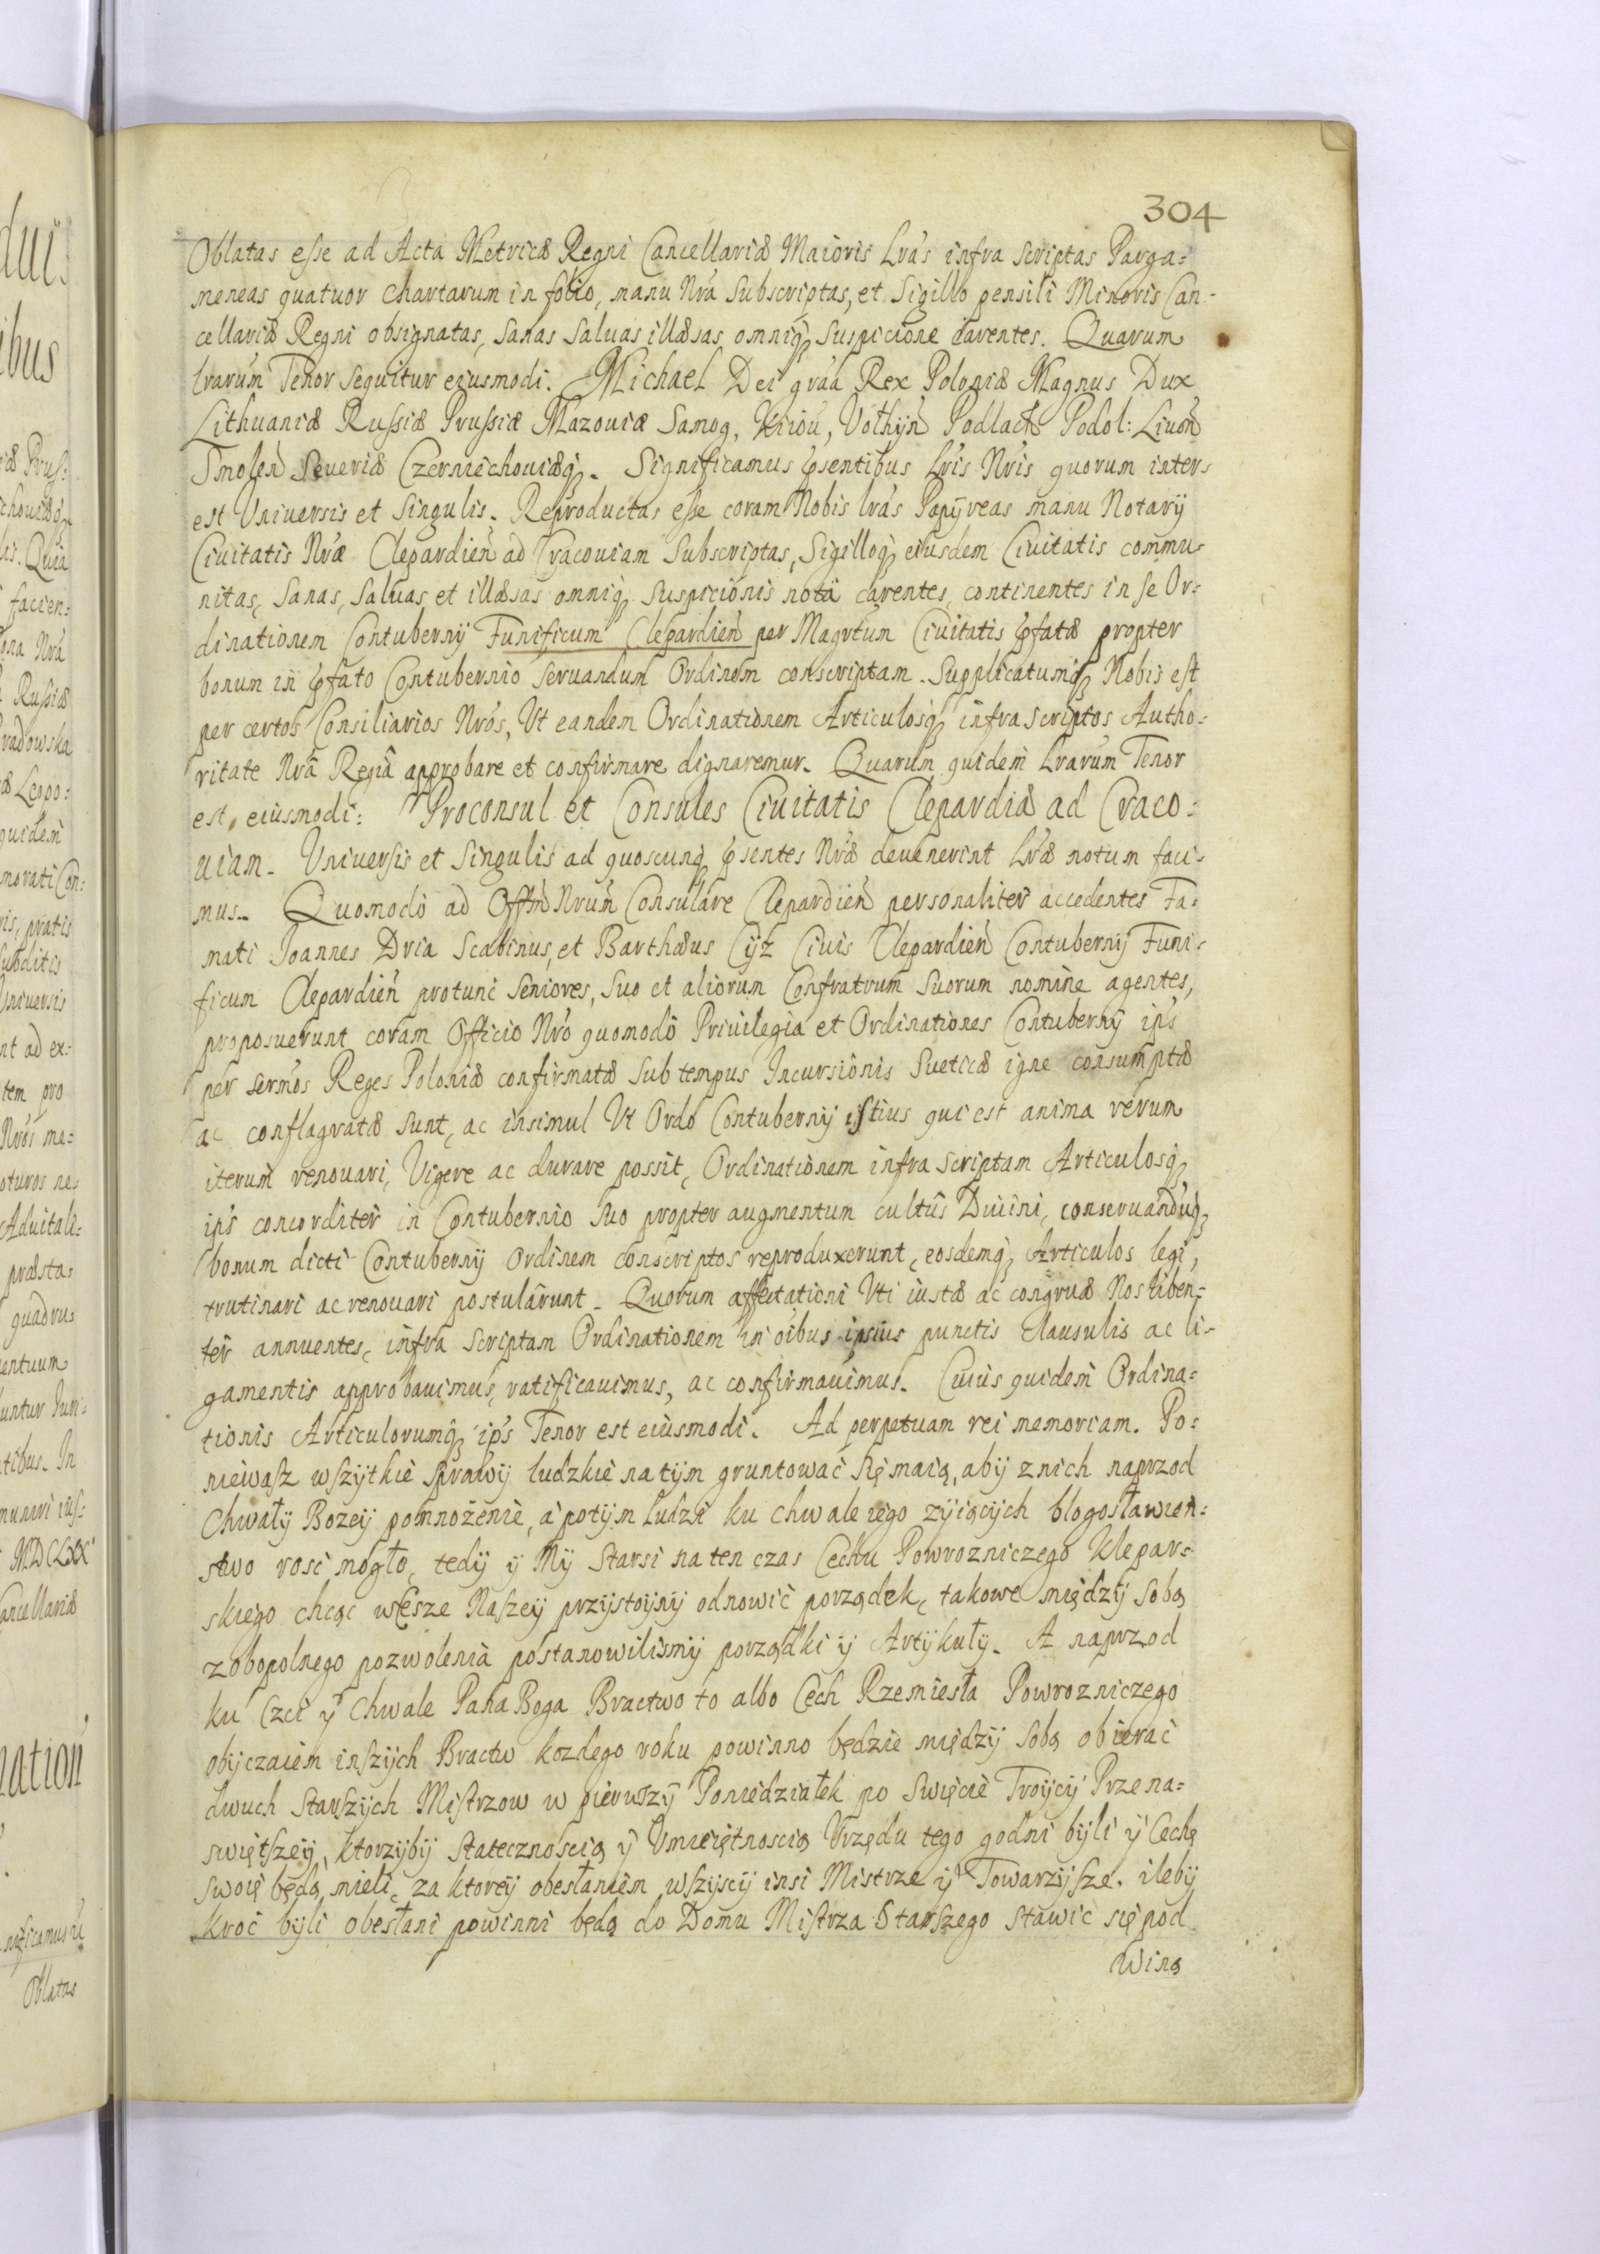 304
Oblatas esse ad Acta Metricæ Regni Cancellariæ Maioris Lrás infra scriptas Parga-
meneas quatuor chartarum in folio, manu Nrá subscriptas, et Sigillo pensili Minoris Can-
cellariæ Regni obsignatas, sanas saluas illæsas omniq; suspicione carentes. Quarum
lrarum Tenor sequitur eiusmodi. Michael Dei gráa Rex Poloniæ Magnus Dux
Lithuaniæ Russiæ Prussiæ Mazouiæ Samog, Kiiou, Vołhÿn Podlach Podol: Liuoń
Smoleń Seueriæ Czerniechouiæq;. Significamus pñsentibus Lrís Nrís quorum inter-
est Vniuersis et singulis. Reproductas esse coram Nobis lrás Papÿreas manu Notarÿ
Ciuitatis Nræ Clepardień ad Cracouiam subscriptas, Sigilloq; eiusdem Ciuitatis commu-
nitas, sanas, saluas et illæsas omniq; suspicionis nota carentes, continentes in se Or-
dinationem Contubernÿ Funificum Clepardień per Magrtum Ciuitatis pfatæ propter
bonum in pfato Contubernio seruandum Ordinem conscriptam. Supplicatumq; Nobis est
per certos Consiliarios Nrós, Vt eandem Ordinationem Articulosq; infra scriptos Autho-
ritate Nrâ Regiâ approbare et confirmare dignaremur. Quarum quidem Lrarum Tenor
est eiusmodi: Proconsul et Consules Ciuitatis Clepardiæ ad Craco-
uiam. Vniuersis et singulis ad quoscunq; pñsentes Nræ deuenerint Lræ notum faci-
mus. Quomodo ad Offm Nrum Consulare Clepardień personaliter accedentes Fa-
mati Joannes Dria Scabinus, et Barthæus Cÿz Ciuis Clepardień Contubernÿ Funi-
ficum Clepardień protunc seniores, suo et aliorum Confratrum suorum nomine agentes,
proposuerunt coram Officio Nró quomodo Priuilegia et Ordinationes Contubernÿ ips
per sermos Reges Poloniæ confirmatæ sub tempus Incursionis Sueticæ igne consumptæ
ac conflagratæ sunt, ac insimul Vt Ordo Contubernÿ istius qui est anima rerum
iterum renouari, Vigere ac durare possit, Ordinationem infra scriptam Articulosq;
ips concorditer in Contubernio suo propter augmentum cultûs Diuini, conseruandúq;
bonum dicti Contubernÿ Ordinem conscriptos reproduxerunt, eosdemq; Articulos legi,
trutinari ac renouari postulârunt. Quorum affectationi Vti iustæ ac congruæ Nos liben-
ter annuentes, infra scriptam Ordinationem in oibus ipsius punctis Clausulis ac li-
gamentis approbauimus, ratificauimus, ac confirmauimus. Cuius quidem Ordina-
tionis Articulorumq; ips Tenor est eiusmodi. Ad perpetuam rei memoriam. Po-
niewasz wszÿtkie sprawÿ ludzkie na tÿm gruntować się maią, abÿ z nich naprzod
Chwałÿ Bozeÿ pomnożenie, a potÿm ludzi ku chwale iego zÿiącÿch blogosławień-
stwo rosć mogło, tedÿ ÿ Mÿ Starsi na ten czas Cechu Powrozniczego Klepar-
skiego chcąc w Esze Naszeÿ przÿstoÿnÿ odnowić porządek, takowe międzÿ sobą
z obopolnego pozwolenia postanowilismÿ porządki ÿ Artÿkułÿ. A naprzod
ku Czci ÿ Chwale Pana Boga Bractwo to albo Cech Rzemiesła Powrozniczego
obÿczaiem inszÿch Bractw kozdego roku powinno będzie międzÿ sobą obierać
dwuch starszÿch Mistrzow w pierwszÿ Poniedziałek po swięcie Troÿcÿ Przena-
swiętszeÿ, ktorzÿbÿ statecznoscią ÿ Vmieiętnoscią Vrzędu tego godni bÿli ÿ Cechę
swoię będą mieli, za ktoreÿ obesłaniem wszÿscÿ insi Mistrze ÿ Towarzÿsze. ilebÿ
kroć bÿli obesłani powinni będą do Domu Mistrza Starszego stawić się pod
winą